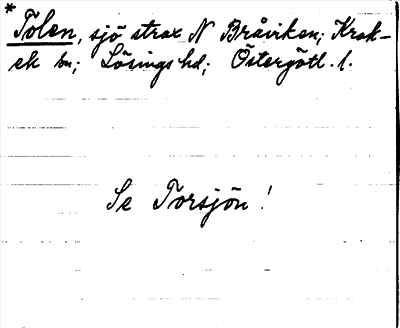 * Tolen, sjö strax N Bråviken; Krok-
ek sn; Lösings hd; Östergötl. l.
Se Torsjön!